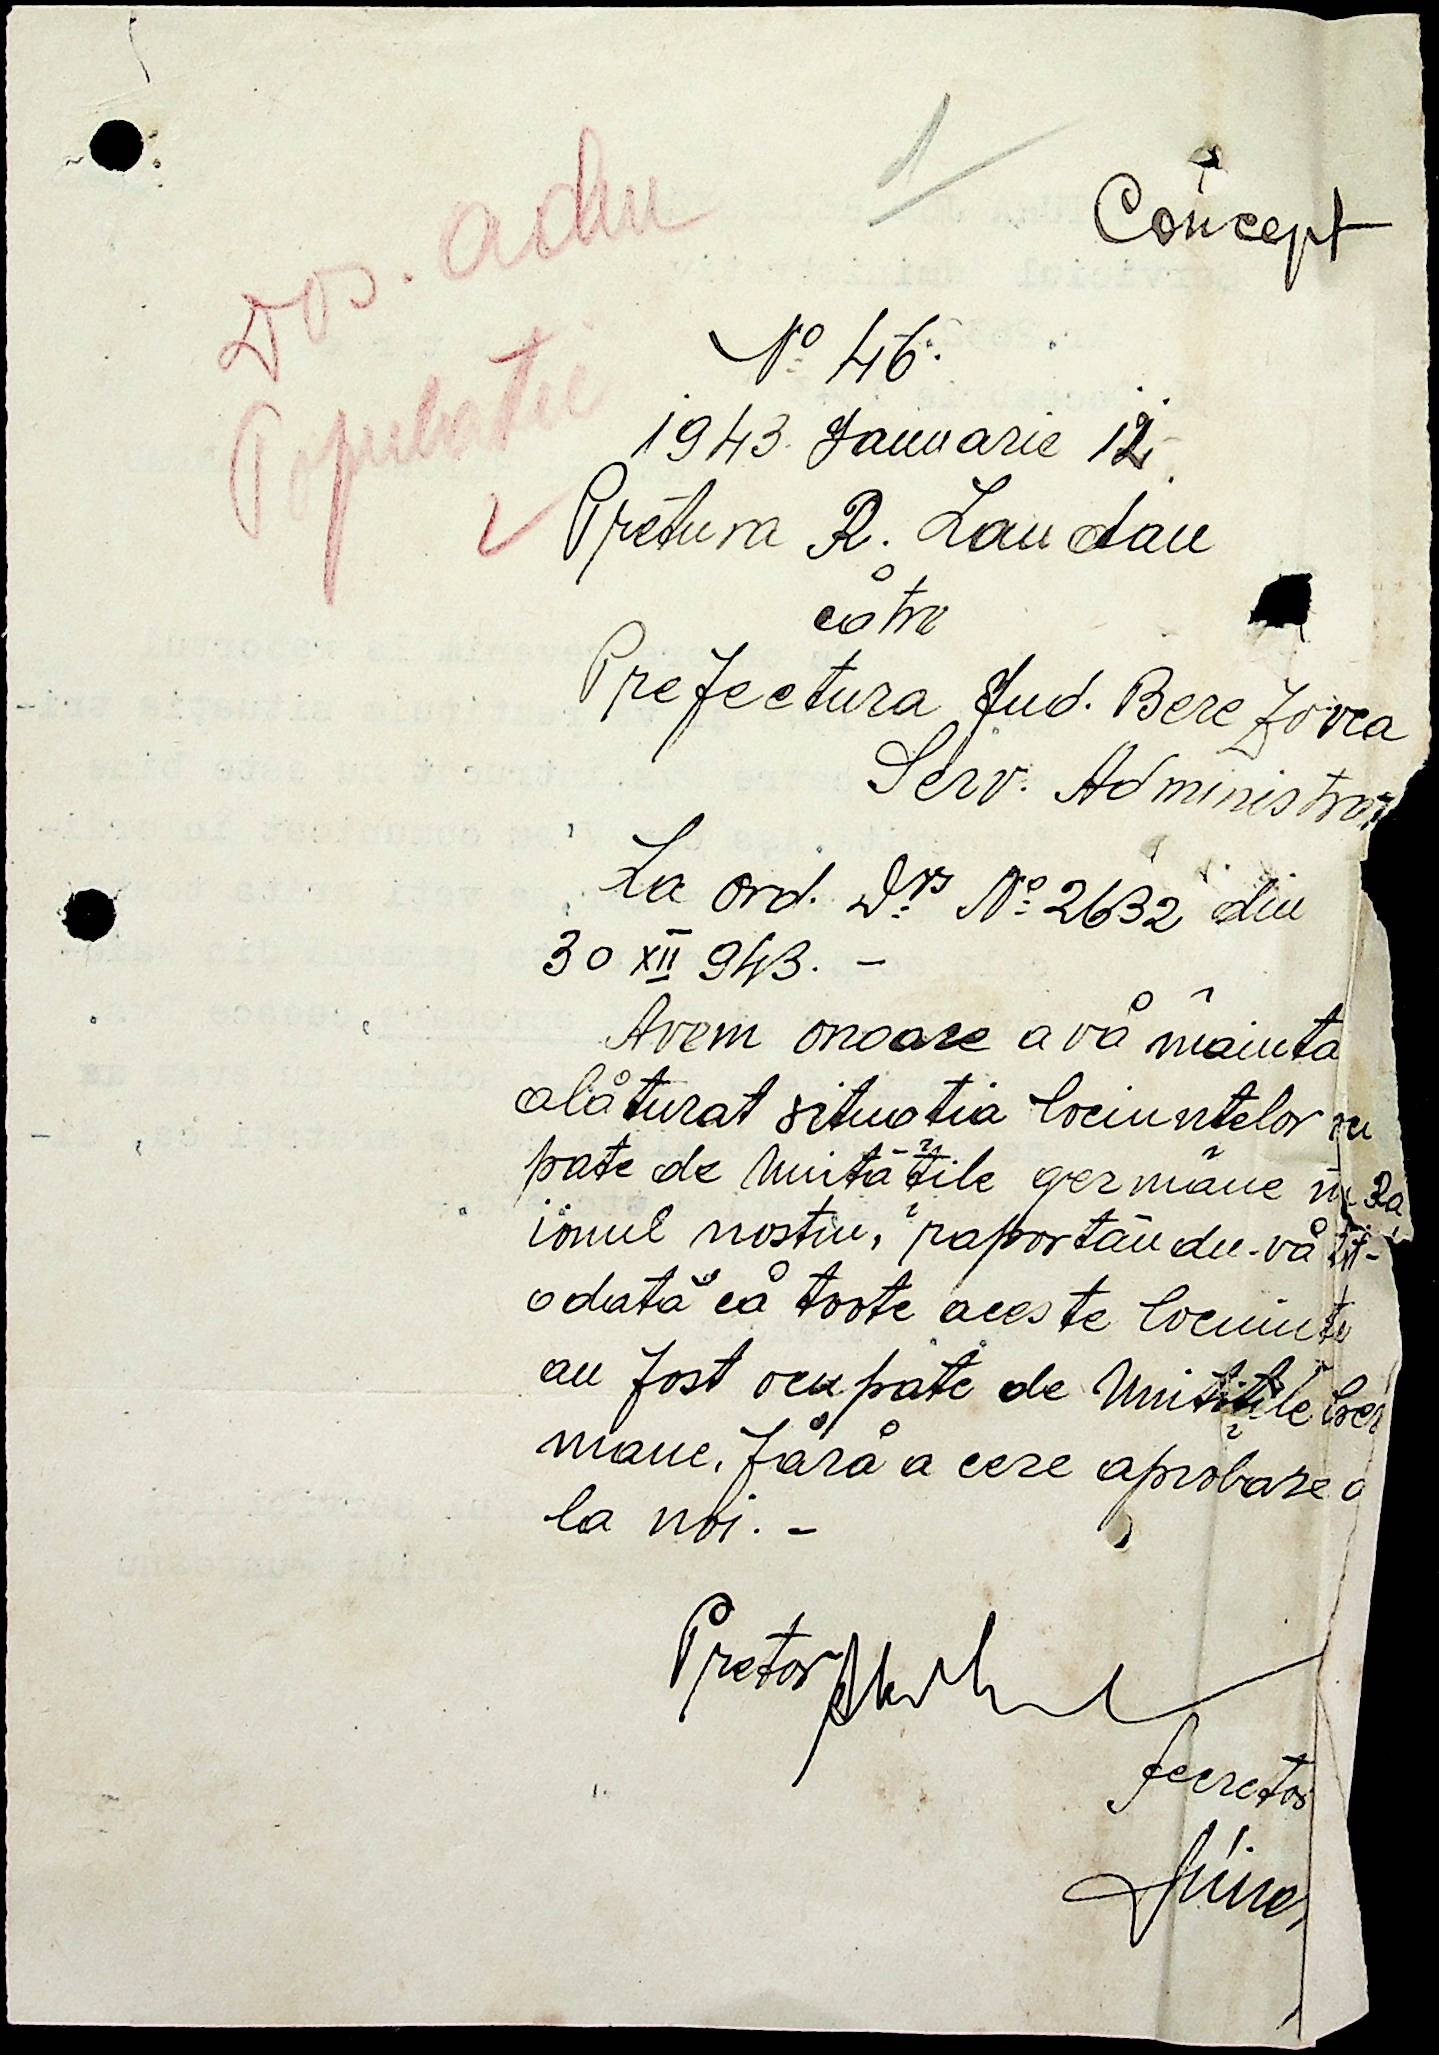 1
Concept
Dos. adm
Populatie
No 46.
1943 Januarie 12
Pretura R. Landau
cătră
Prefectura Jud. Berezovca
Serv. Administrat
La ord. Dvs No 2632 din
30 XII 943. -
Avem onoare a vă înainta
alăturat situatia locuintelor ocu
pate de unitățile germane în Ra
ionul nostru, raportându-vă tot-
odată că toate aceste locuinte
au fost ocupate de unitățile Ger
mane, fără a cere aprobare
la noi. -
Pretor
Secretar